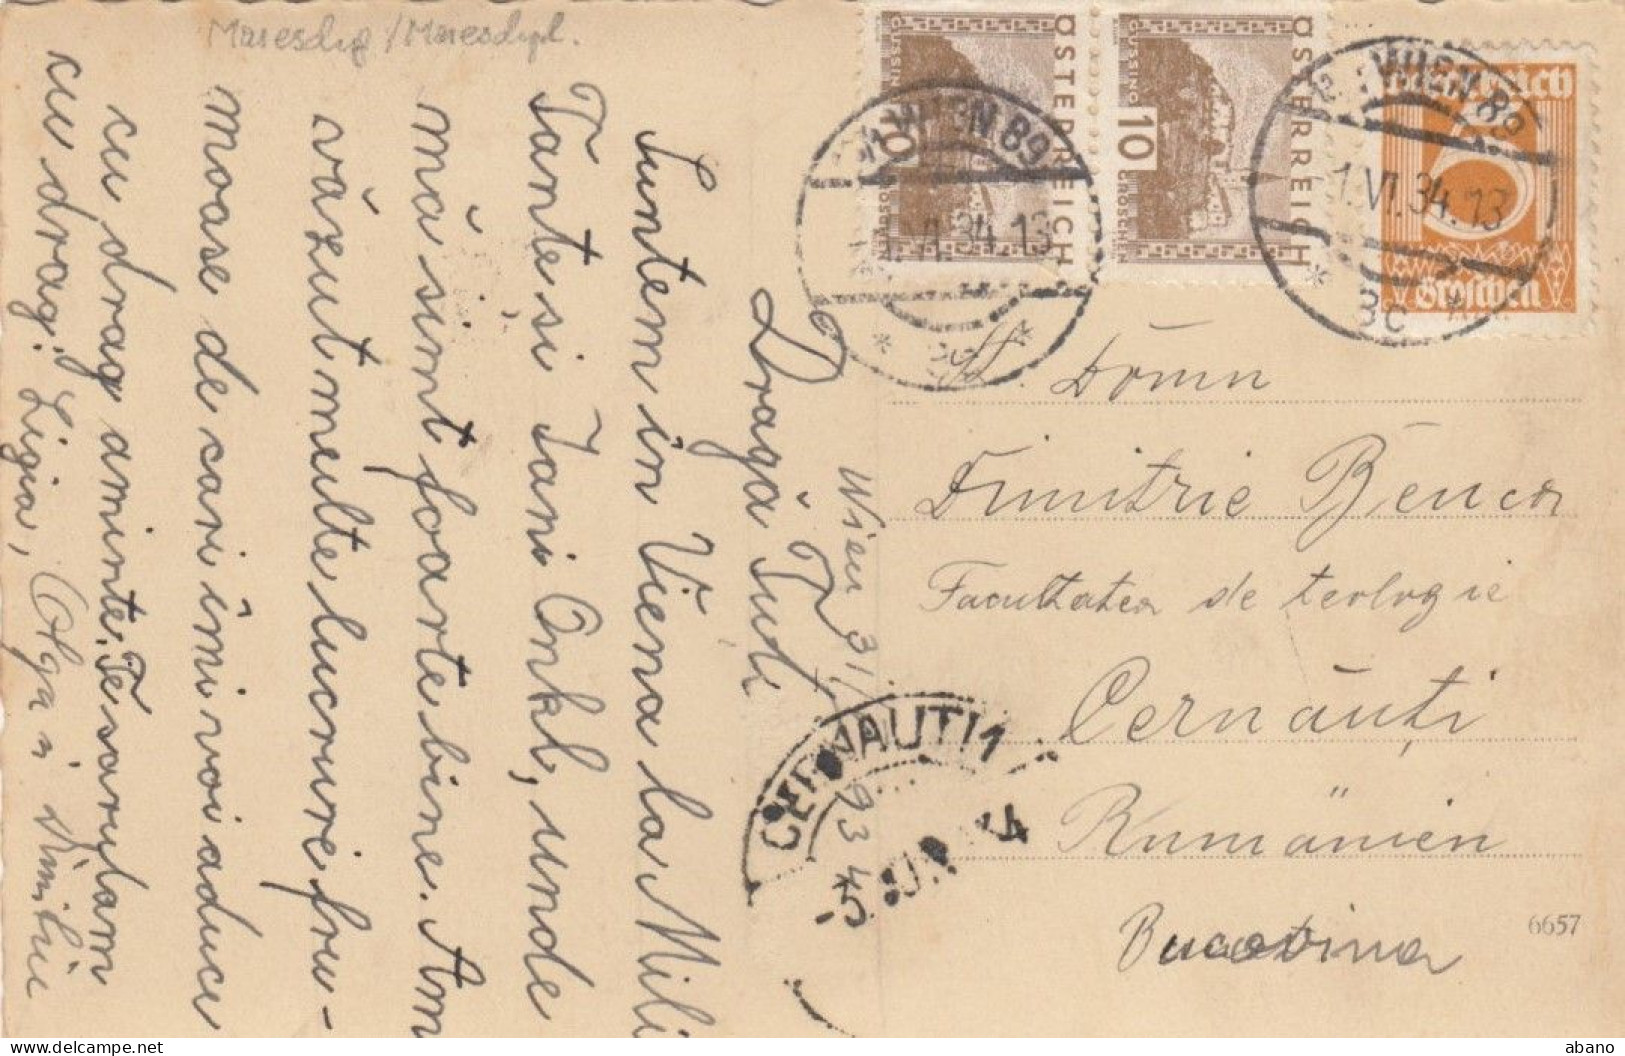 Wien 31/
Dragă Tuti
Suntem in Viena la Mili
Tante și Jani Onkl, unde
mă simt foarte bine. Am
văzut multe lucruri fru-
moase de cari îmi voi aduce
cu drag aminte. Te sărutam
cu drag: Ligia, Olga și
WIEN 89
VI. 34. 13
ÖSTERREICH
GÜSSING
10
GROSCHEN
ÖSTERREICH
GÜSSING
10
GROSCHEN
WIEN 89
1. VI. 34. 13
3c
Österreich
5
Groschen
Domn
Dimitrie Bencor
Facultatea de teologie
Cernăuți
Rumänien
Bucovina
CERNAUTI 1
934
-5. JUN 34
6657
abano